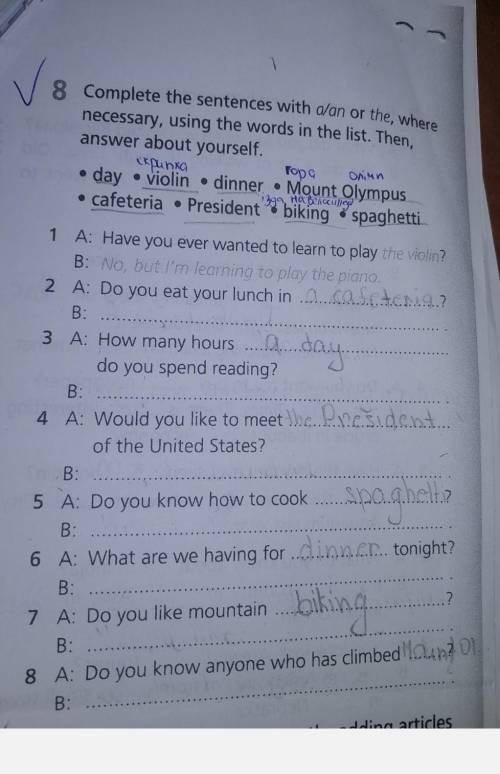 8 Complete the sentences with a/an or the, where
necessary, using the words in the list. Then,
answer about yourself.
скрипка гора олимп
• day • violin • dinner • Mount Olympus
езда на велосипеде
• cafeteria • President • biking • spaghetti
1 A: Have you ever wanted to learn to play the violin?
B: No, but I'm learning to play the piano.
2 A: Do you eat your lunch in a cafeteria?
B:
3 A: How many hours a day
do you spend reading?
B:
4 A: Would you like to meet the President
of the United States?
B:
5 A: Do you know how to cook spaghetti?
B:
6 A: What are we having for dinner tonight?
B:
7 A: Do you like mountain biking?
B:
8 A: Do you know anyone who has climbed Mount Ol?
B:
adding articles